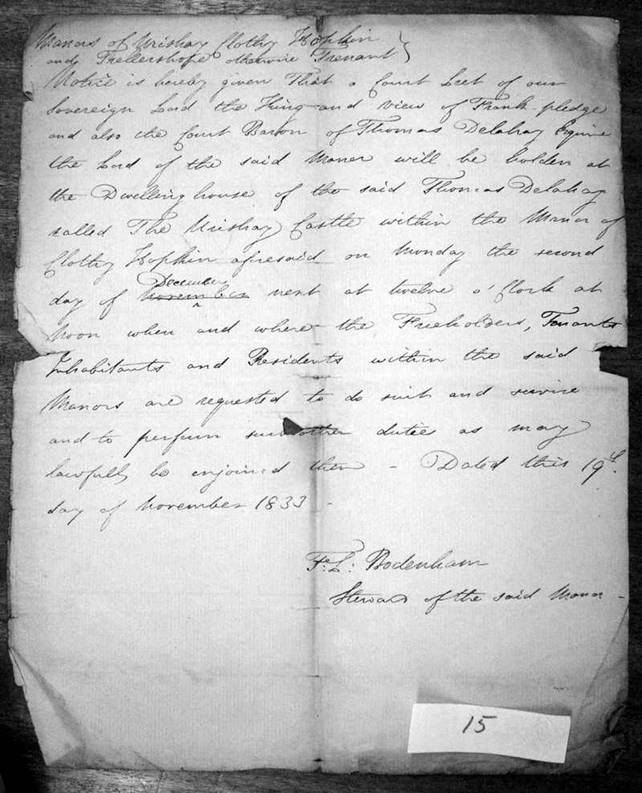 Manors of Urishay Clothy Hopkin
and Trellershope otherwise Trenant }
Notice is hereby given That a Court Leet of our
Sovereign Lord the King and View of Frank-pledge
and also the Court Baron of Thomas Delahay Esquire
the Lord of the said Manor will be holden at
the Dwelling house of the said Thomas Delahay
called The Urishay Castle within the Manor of
Clothy Hopkin aforesaid on Monday the second
December
day of November next at twelve o'Clock at
Noon when and where the Freeholders, Tenants
Inhabitants and Residents within the said
Manors are requested to do suit and service
and to perform such other duties as may
lawfully be enjoined them - Dated this 19th.
day of November 1833 -
Fs. L: Bodenham
Steward of the said Manor -
15